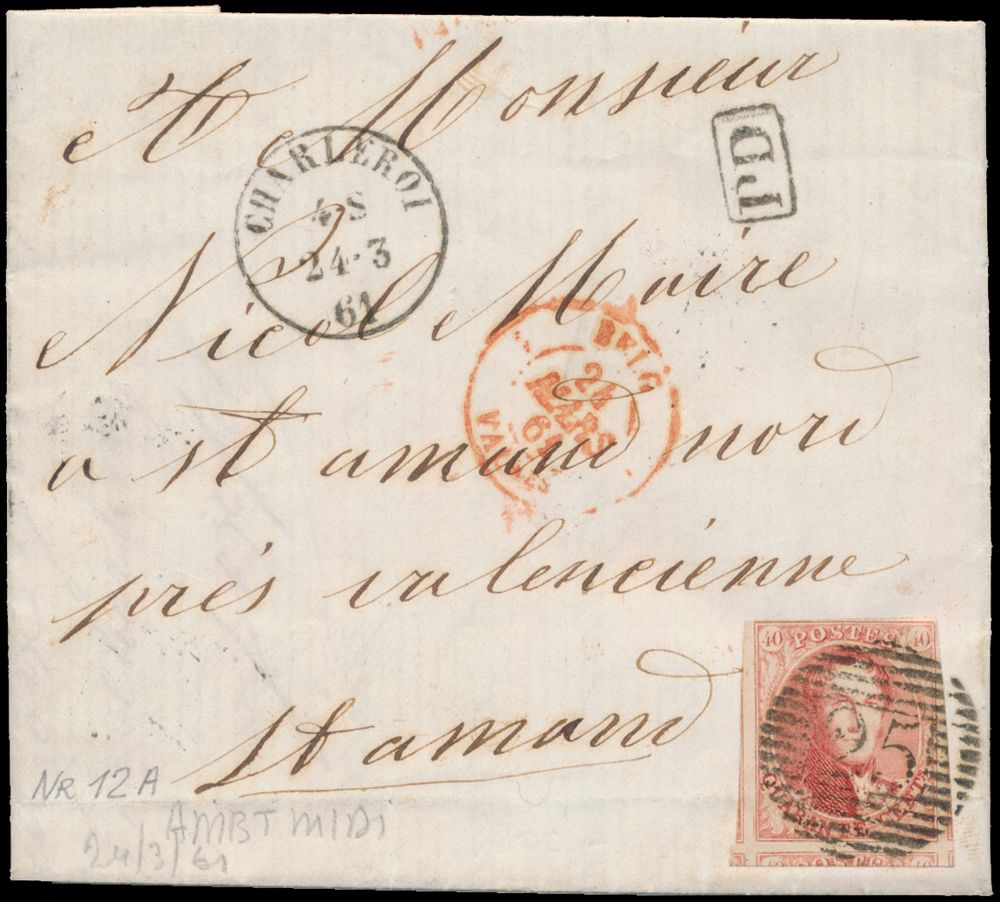 A Monsieur
PD
CHARLEROI
4·S
24·3
61
Nicol Moire
BELG
24
MARS
61
a st amand nord
près valencienne
st amand
40 POSTES 40
25
QUARANTE CENTS
NR 12A
AMBT MIDI
24/3/61